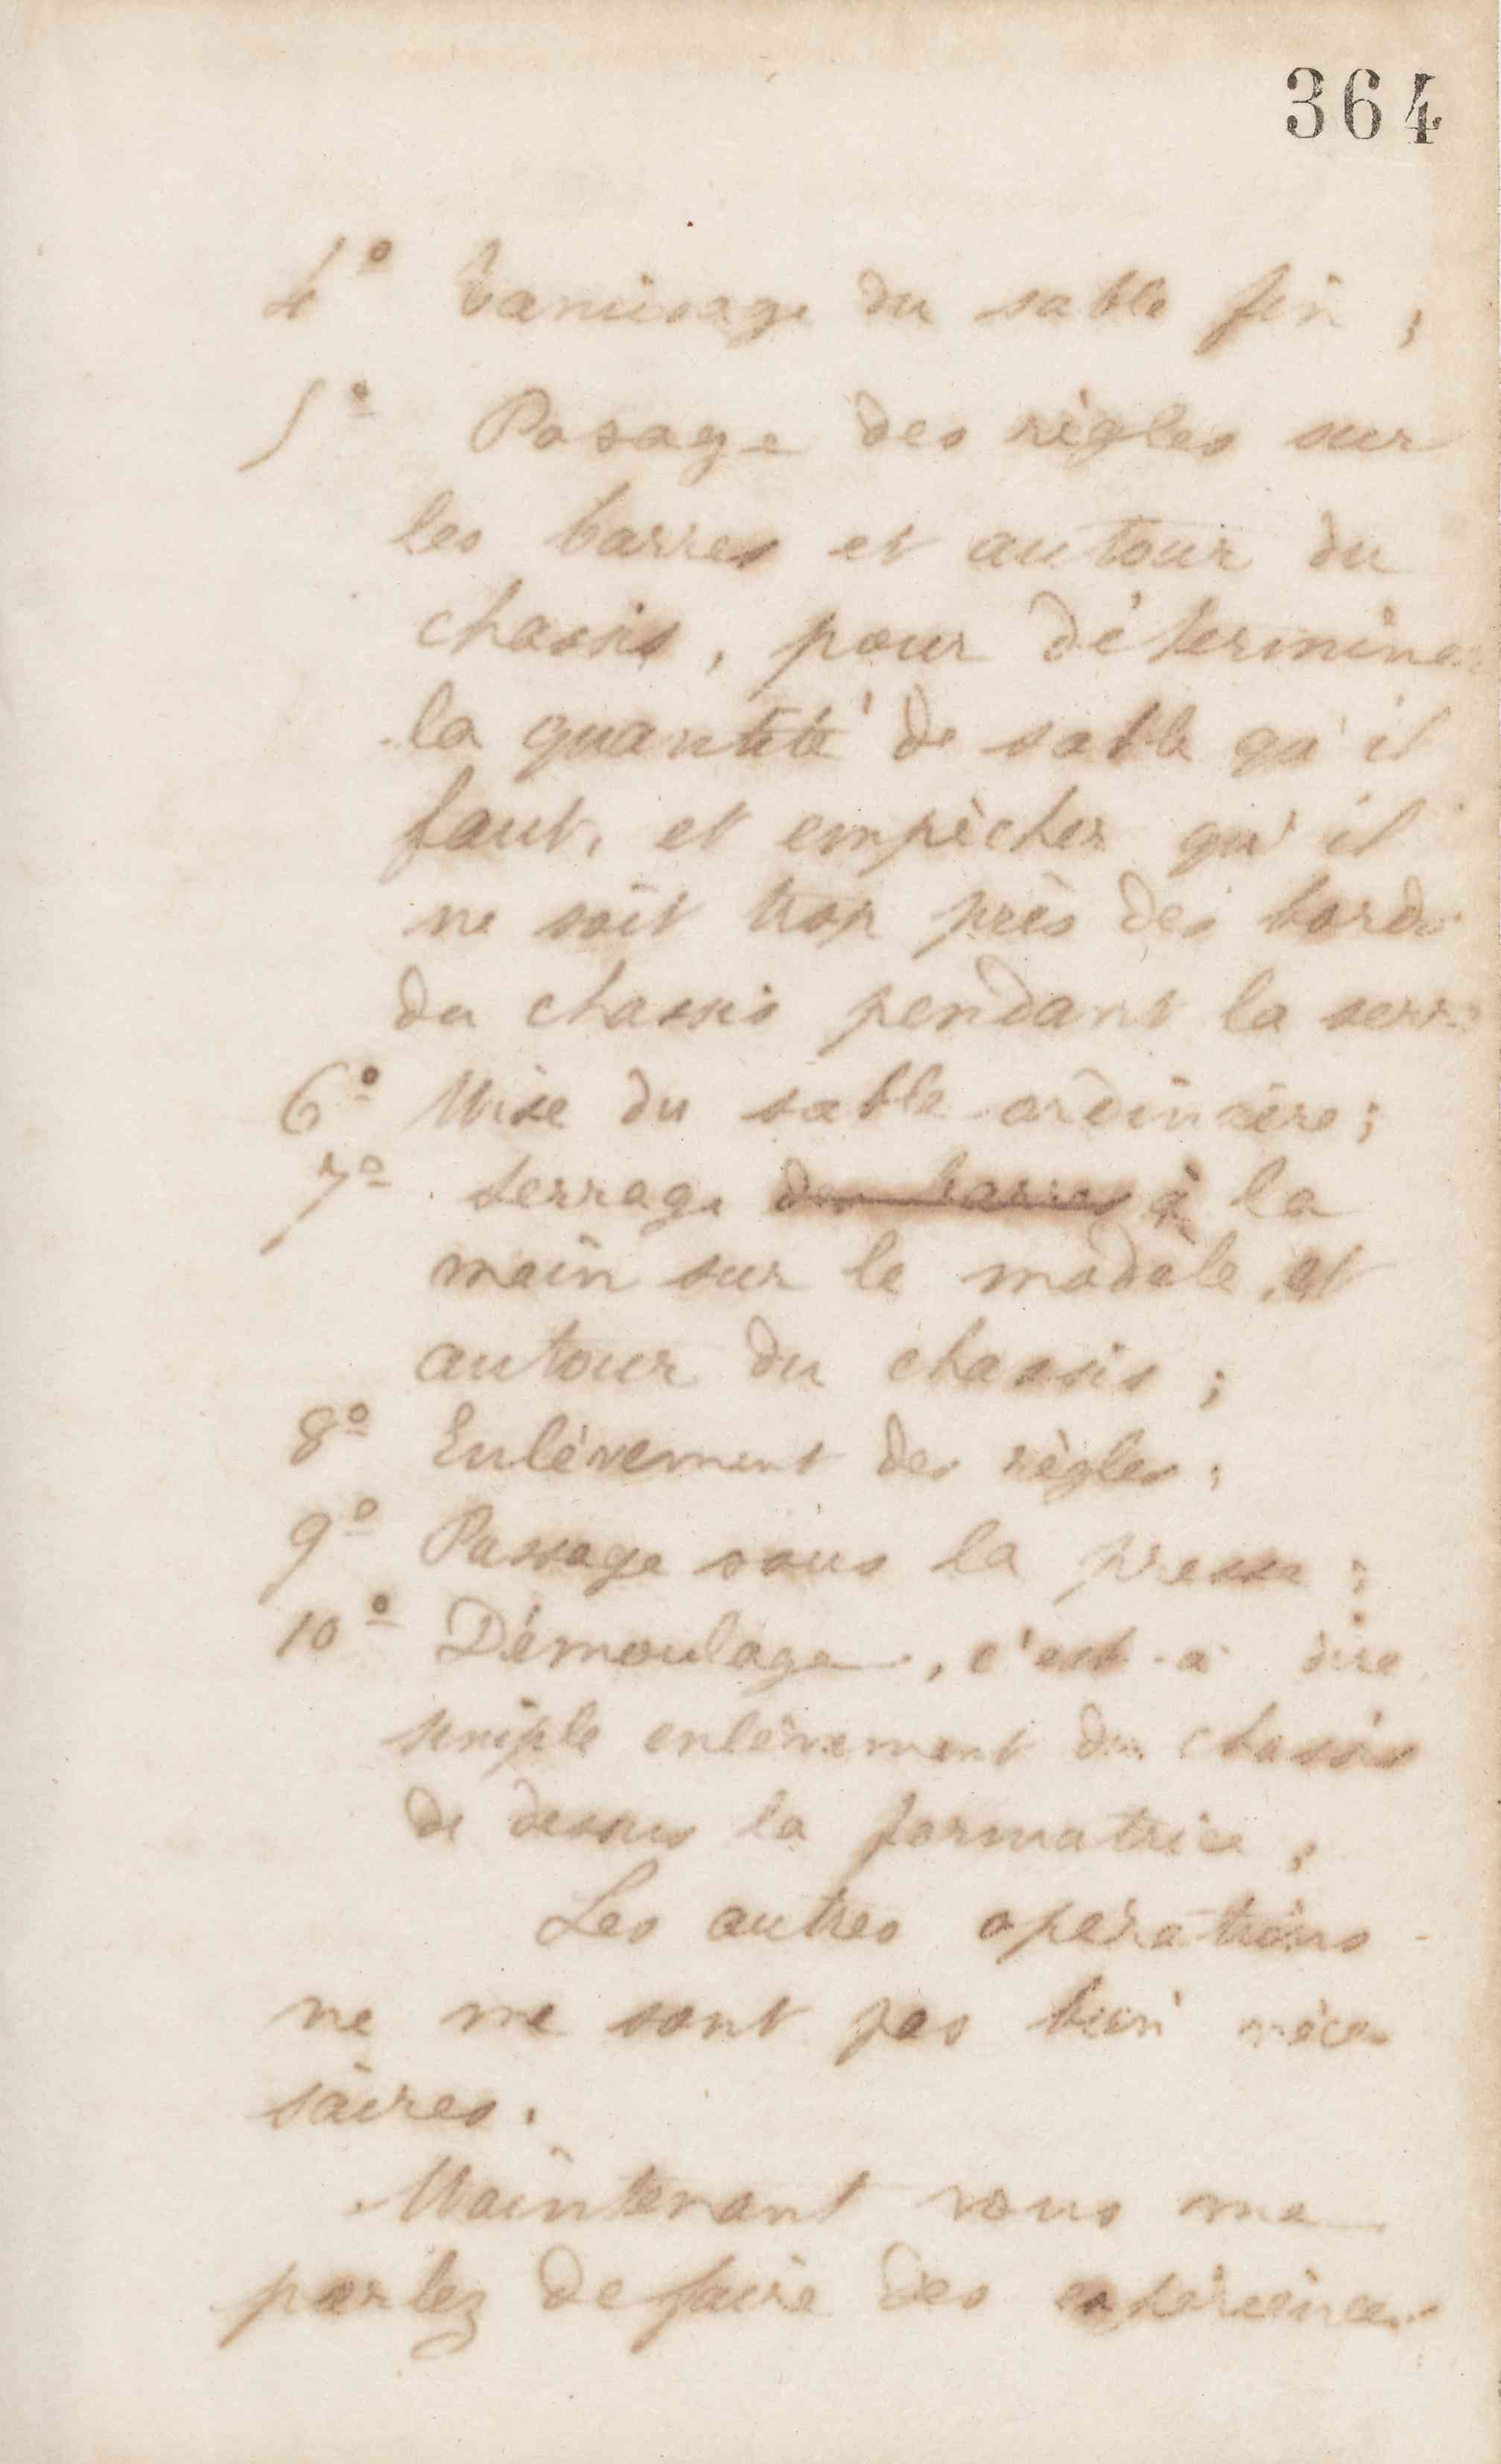 364
4º tamisage du sable fin ;
5º Posage des règles sur
les barres et autour du
chassis, pour déterminer
la quantité de sable qu'il
faut, et empêcher qu'il
ne soit trop près des bords
du chassis pendant la serr
6º Mise du sable ordinaire ;
7º serrage des barres à la
main sur le modèle et
autour du chassis ;
8º Enlèvement des règles ;
9º Passage sous la presse ;
10º Démoulage, c'est-à dire
simple enlèvement du chassis
de dessus la formatrice ;
Les autres opérations
ne me sont pas bien néces
saires.
Maintenant vous me
parlez de faire des expériences